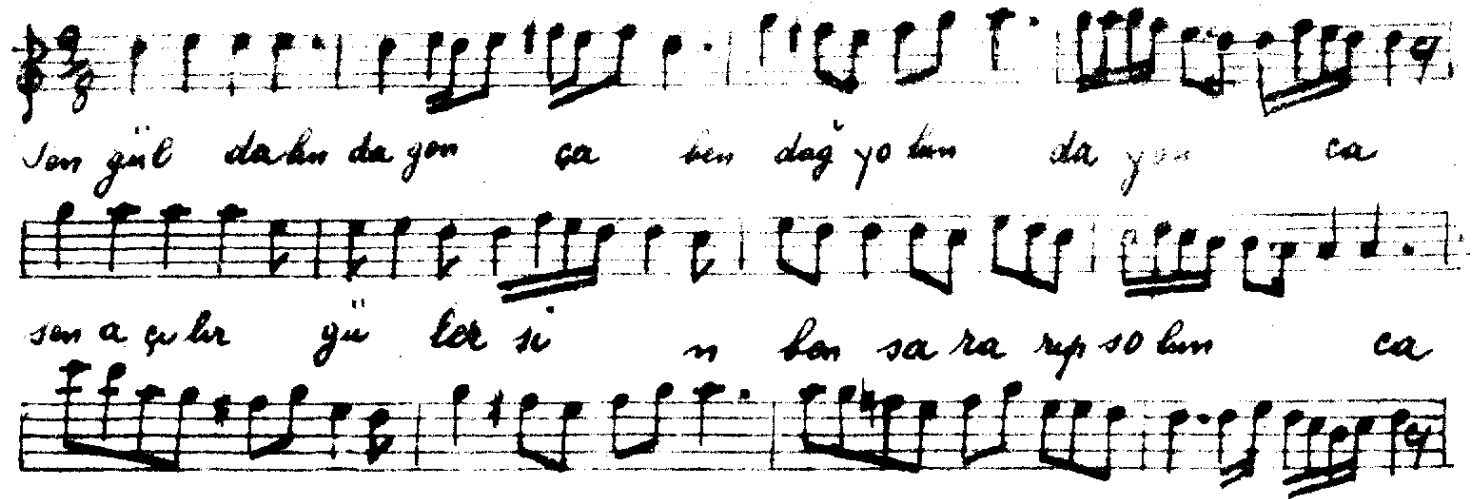 Sen gül dalında gon ça ben dağ yo lun da yon ca
sen a çı lır gü ler si n ben sa ra rıp so lun ca